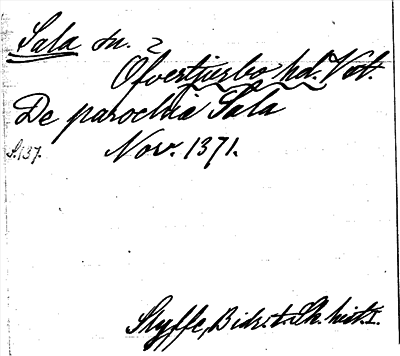 Sala sn. 2
Öfvertjurbo hd. Vst.
De parochia Sala
S. 137. Nov. 1371.
Styffe, Bidr. t. Sk. hist. I.